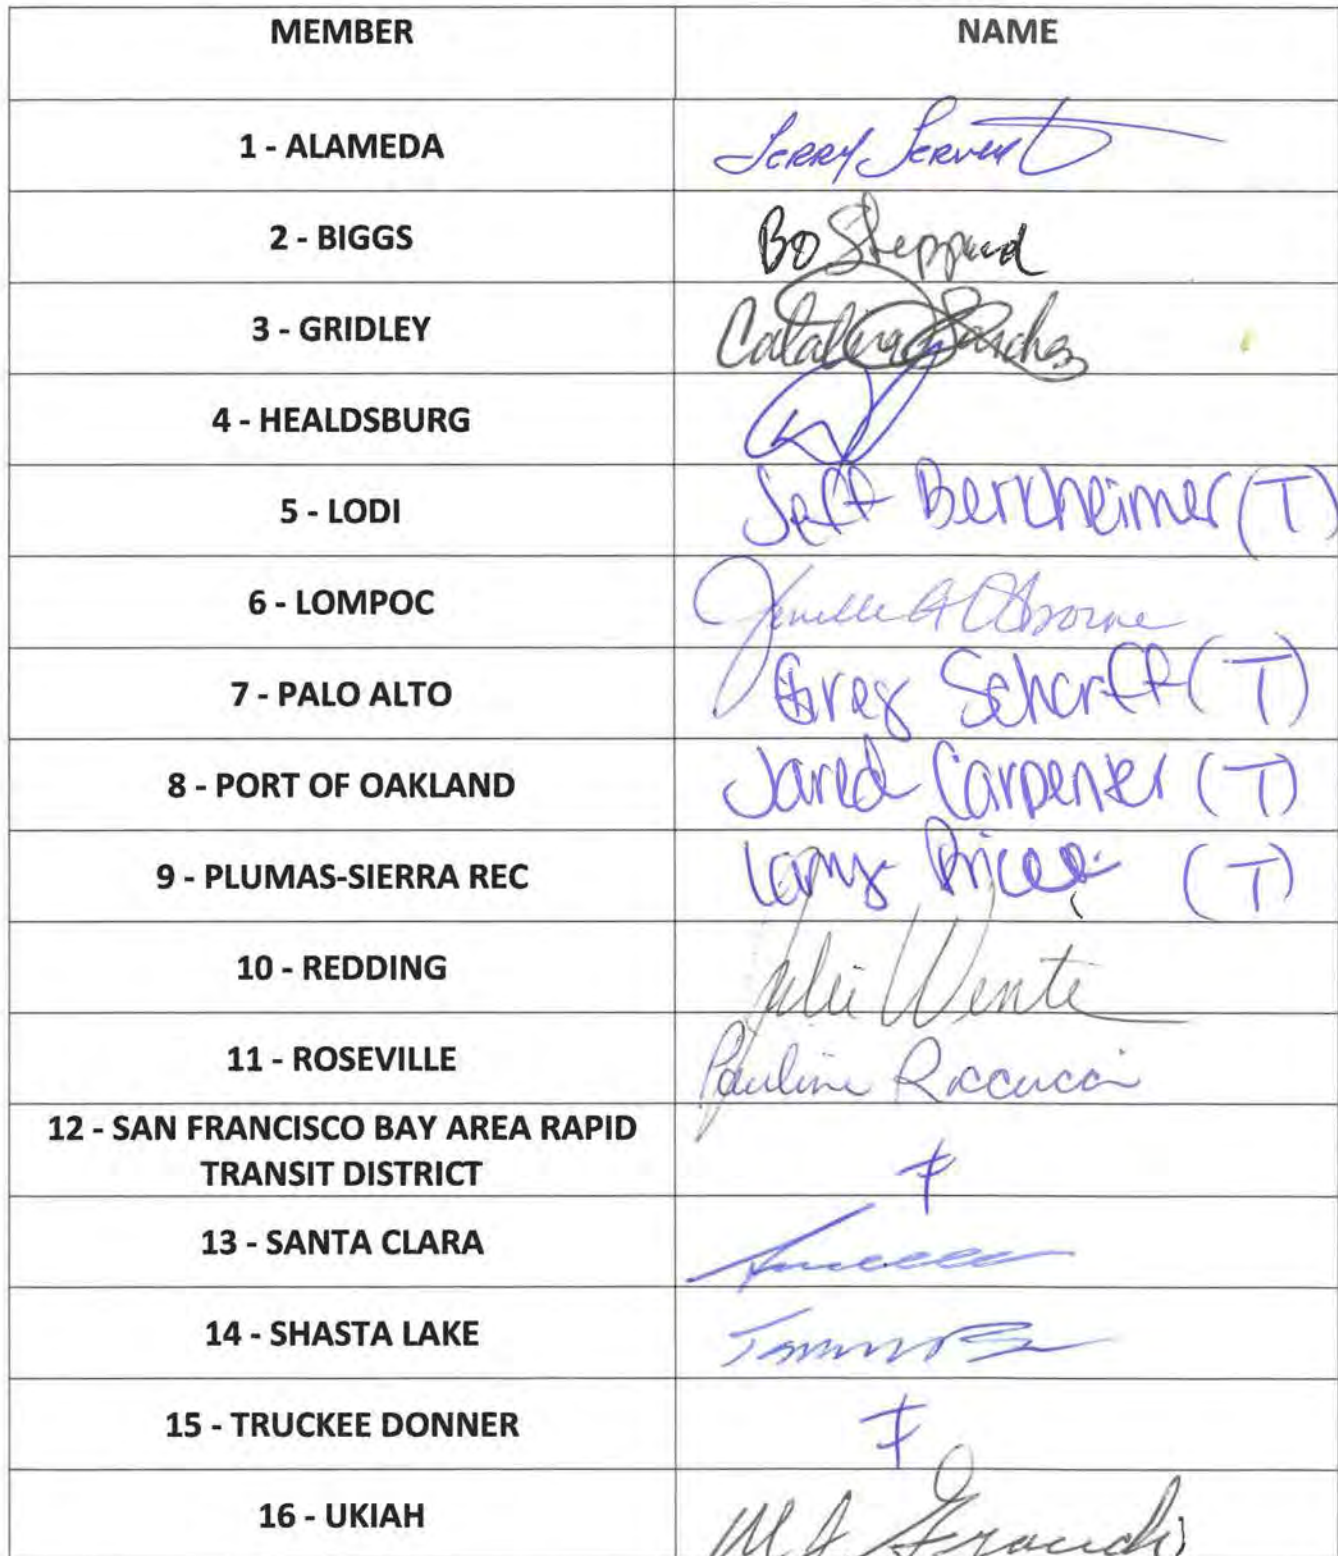 MEMBER NAME
1 - ALAMEDA Jerry Servent
2 - BIGGS Bo Sheppard
3 - GRIDLEY Catalina Sanchez
4 - HEALDSBURG
5 - LODI Jeff Berkheimer (T)
6 - LOMPOC Jenelle A Osborne
7 - PALO ALTO Greg Scharff (T)
8 - PORT OF OAKLAND Jared Carpenter (T)
9 - PLUMAS-SIERRA REC Price (T)
10 - REDDING Julie Wente
11 - ROSEVILLE Pauline Roccucci
12 - SAN FRANCISCO BAY AREA RAPID
TRANSIT DISTRICT
13 - SANTA CLARA
14 - SHASTA LAKE
15 - TRUCKEE DONNER
16 - UKIAH